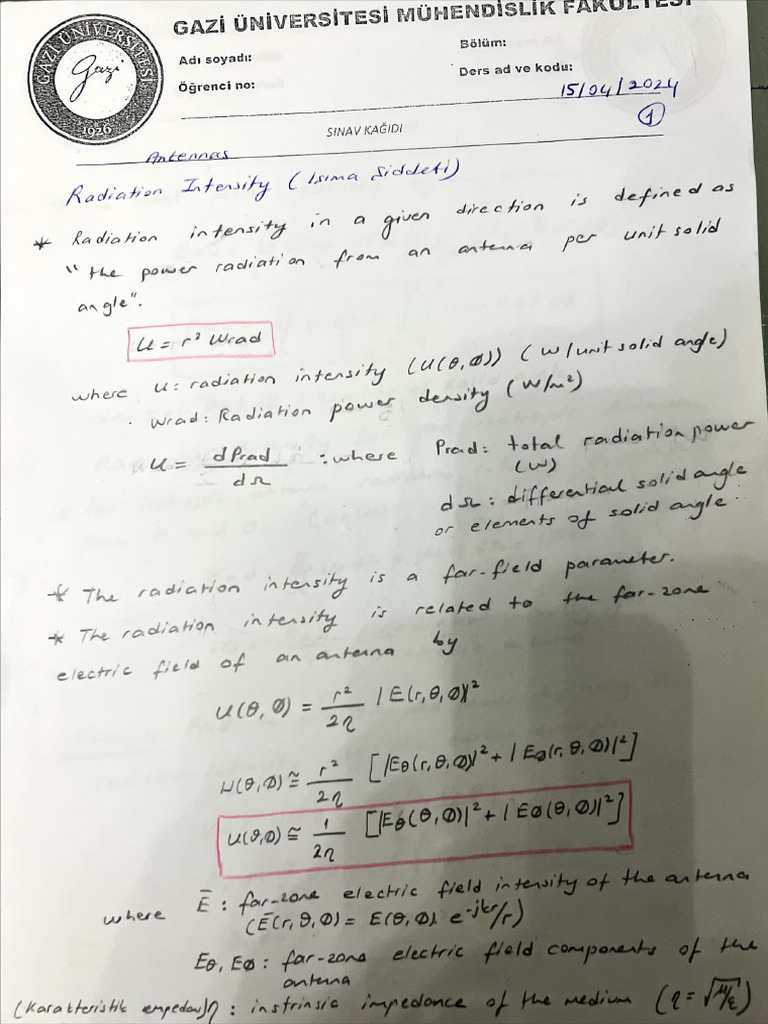 GAZİ ÜNİVERSİTESİ MÜHENDİSLİK FAKÜLTESİ
GAZİ ÜNİVERSİTESİ
Gazi
1926
Adı soyadı:
Bölüm:
Öğrenci no:
Ders ad ve kodu:
15/04/2024
1
SINAV KAĞIDI
Antennas
Radiation Intensity (Isıma Şiddeti)
* Radiation intensity in a given direction is defined as
"the power radiation from an antenna per unit solid
angle".
U = r² Wrad
where U: radiation intensity (U(θ,Ø)) (W/unit solid angle)
. Wrad: Radiation power density (W/m²)
U = dPrad / dΩ : where Prad: total radiation power
(W)
dΩ: differential solid angle
or elements of solid angle.
* The radiation intensity is a far-field parameter.
* The radiation intensity is related to the far-zone
electric field of an antenna by
U(θ,Ø) = r²/2η |E(r,θ,Ø)|²
U(θ,Ø) ≅ r²/2η [|Eθ(r,θ,Ø)|² + |EØ(r,θ,Ø)|²]
U(θ,Ø) ≅ 1/2η [|Eθ(θ,Ø)|² + |EØ(θ,Ø)|²]
where Ē: far-zone electric field intensity of the antenna
(Ē(r,θ,Ø) = E(θ,Ø). e^-jkr/r)
Eθ, EØ: far-zone electric field components of the
antenna
(Karakteristik empedans) η: instrinsic impedance of the medium (η = √μ/ε)